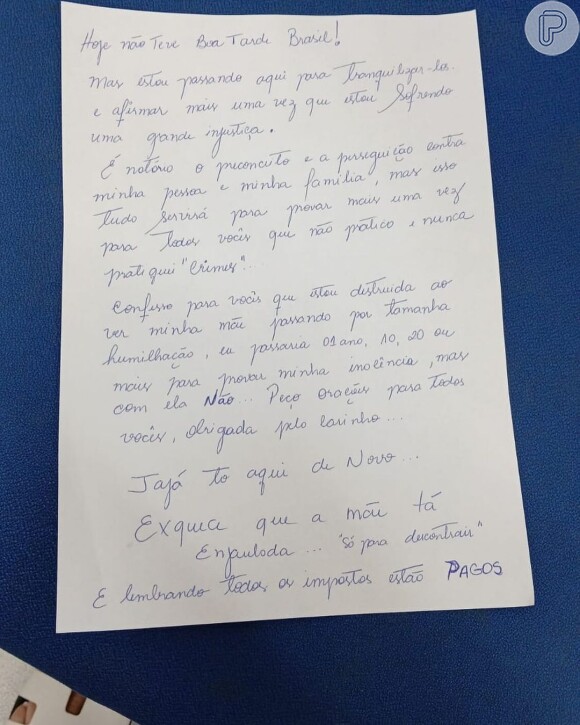 Hoje não teve Boa Tarde Brasil!
Mas estou passando aqui para tranquilizar-los
e afirmar mais uma vez que estou sofrendo
uma grande injustiça.
É notório o preconceito e a perseguição contra
minha pessoa e minha família, mas isso
tudo servirá para provar mais uma vez
para todos vocês que não pratico e nunca
pratiquei "Crimes"...
Confesso para vocês que estou destruida ao
ver minha mãe passando por tamanha
humilhação, eu passaria 01 ano, 10, 20 ou
mais para provar minha inocência, mas
com ela Não... Peço orações para todos
vocês, obrigada pelo carinho...
Jajá to aqui de Novo...
Exquece que a mãe tá
Enjaulada... "só para descontrair"
E lembrando todos os impostos estão PAGOS
P